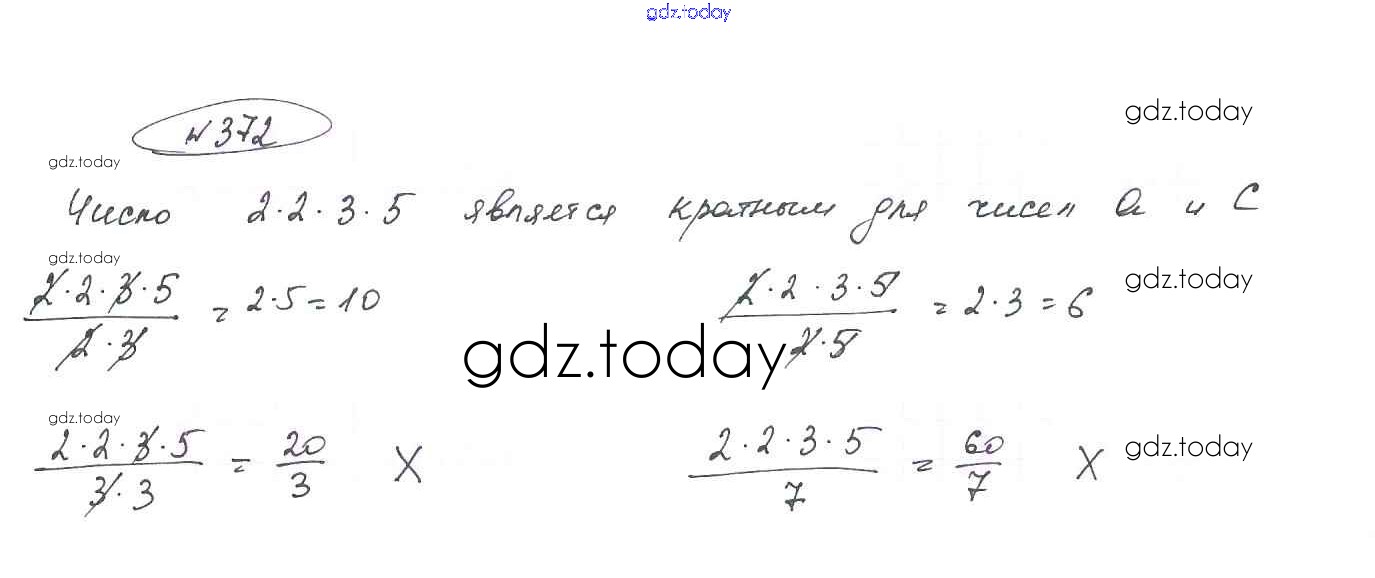 gdz.today
gdz.today
№ 372
gdz.today
Число 2·2·3·5 является кратным для чисел a и C
gdz.today
gdz.today
2·2·3·5 / 2·3 = 2·5 = 10    2·2·3·5 / 2·5 = 2·3 = 6
gdz.today
gdz.today
2·2·3·5 / 3·3 = 20/3 X    2·2·3·5 / 7 = 60/7 X
gdz.today